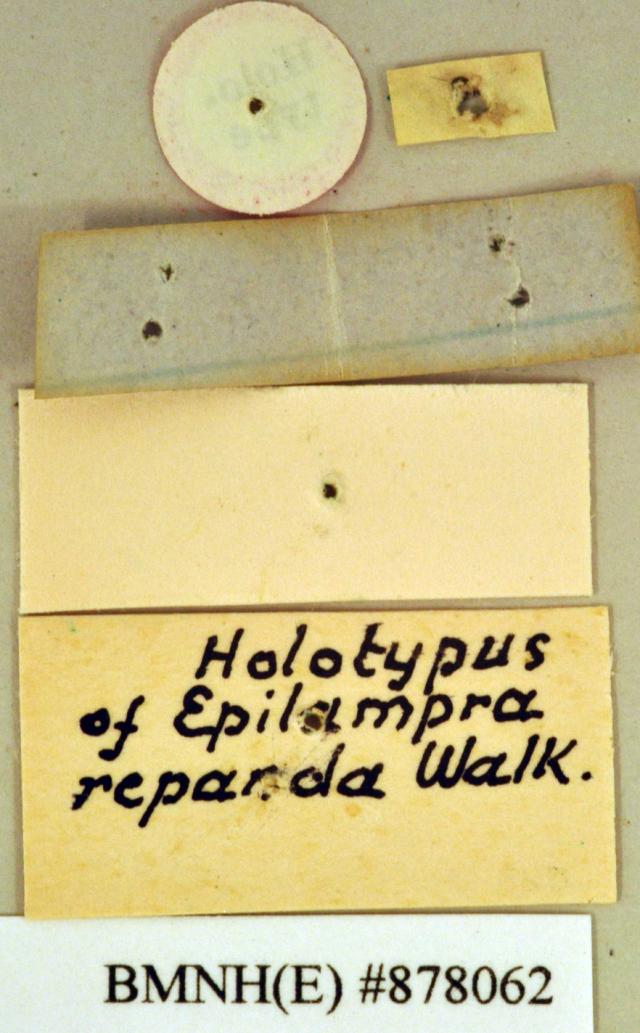 Holo.
type
Holotypus
of Epilampra
repanda Walk.
BMNH(E) #878062